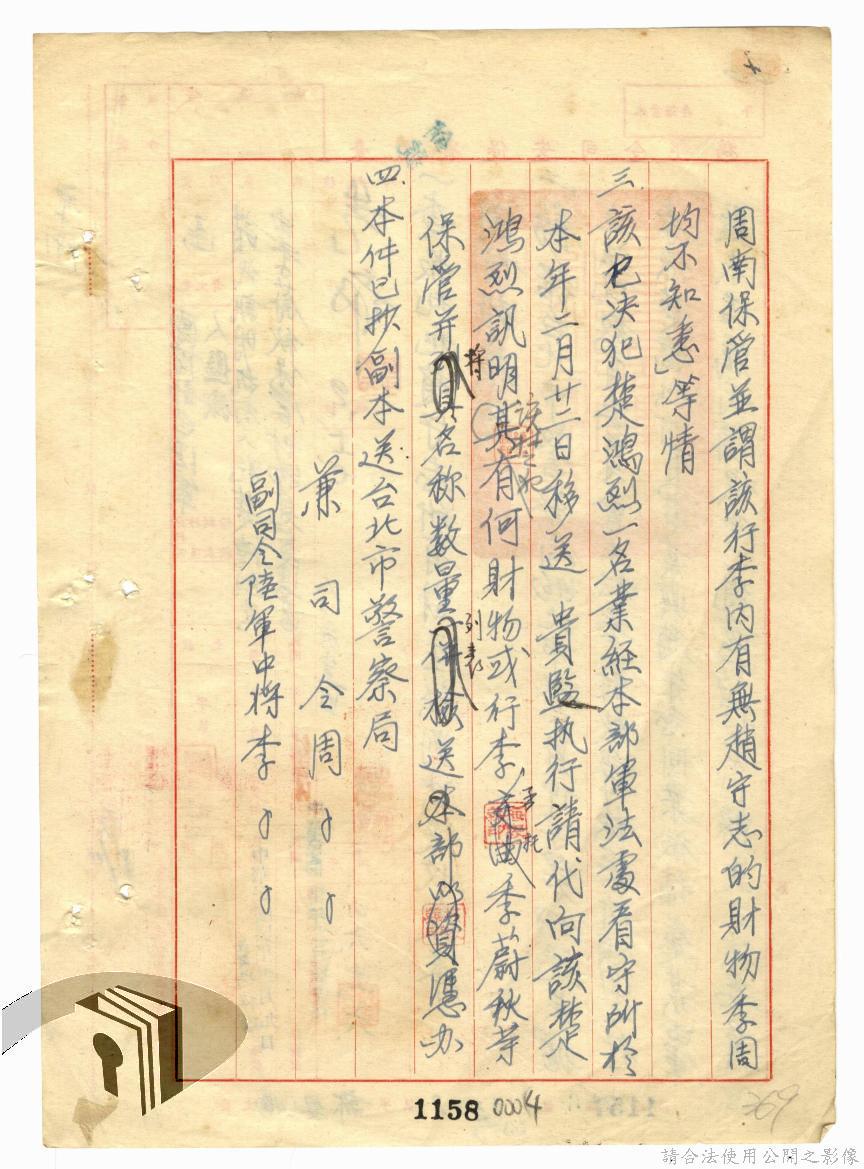 周南保管並謂該行李內有無趙守志的財物季周
均不知悉」等情
三、該已决犯楚鴻烈一名業経本部軍法處看守所於
本年二月廿二日移送 貴監执行請代向該楚
鴻烈訊明該有何財物或行李交由季蔚秋等
保管并將名称数量列表送本部以資憑办
四、本件已抄副本送台北市警察局
兼司令周
副司令陸軍中將李
1158 0004
369
請合法使用公開之影像